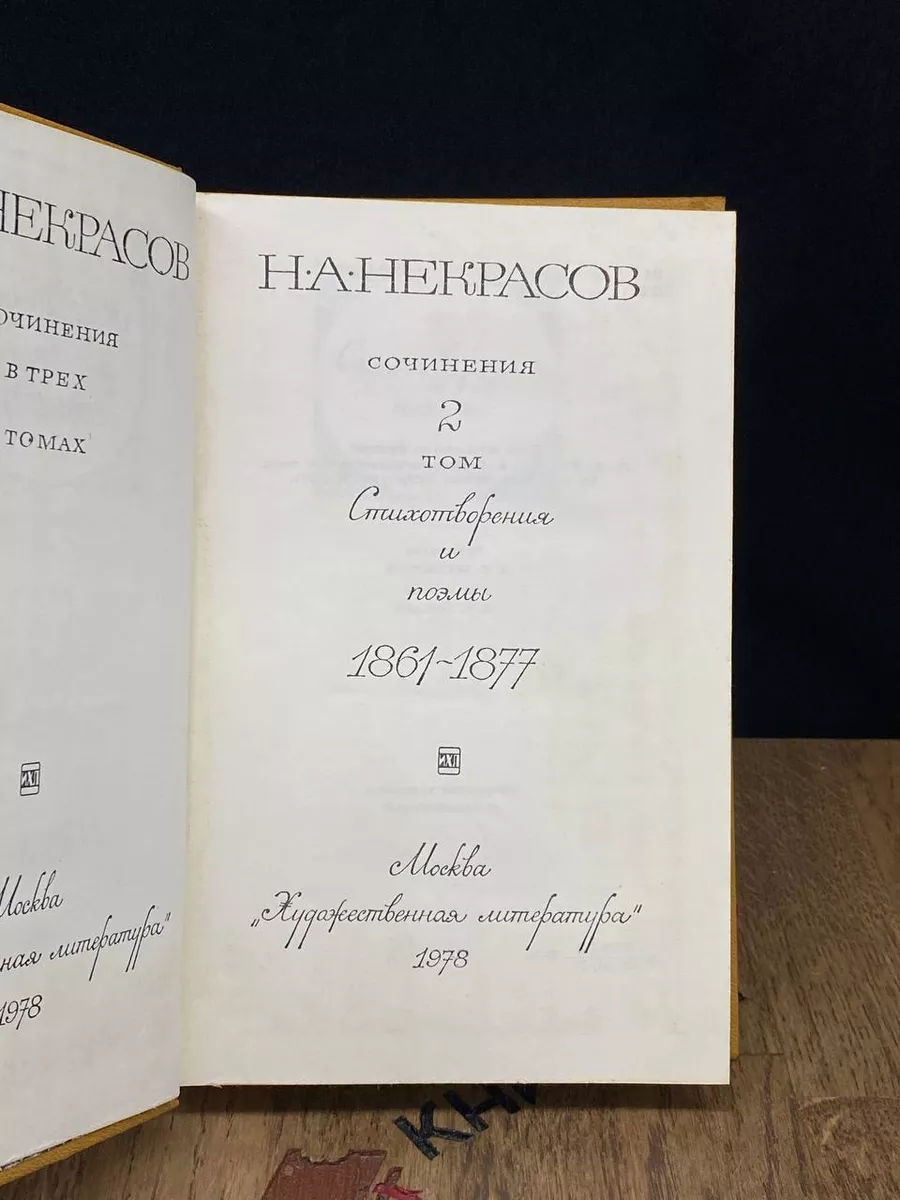 НЕКРАСОВ
СОЧИНЕНИЯ
В ТРЕХ
ТОМАХ
Москва
литература"
1978
Н·А·НЕКРАСОВ
СОЧИНЕНИЯ
2
ТОМ
Стихотворения
и
поэмы
1861-1877
Москва
„Художественная литература"
1978